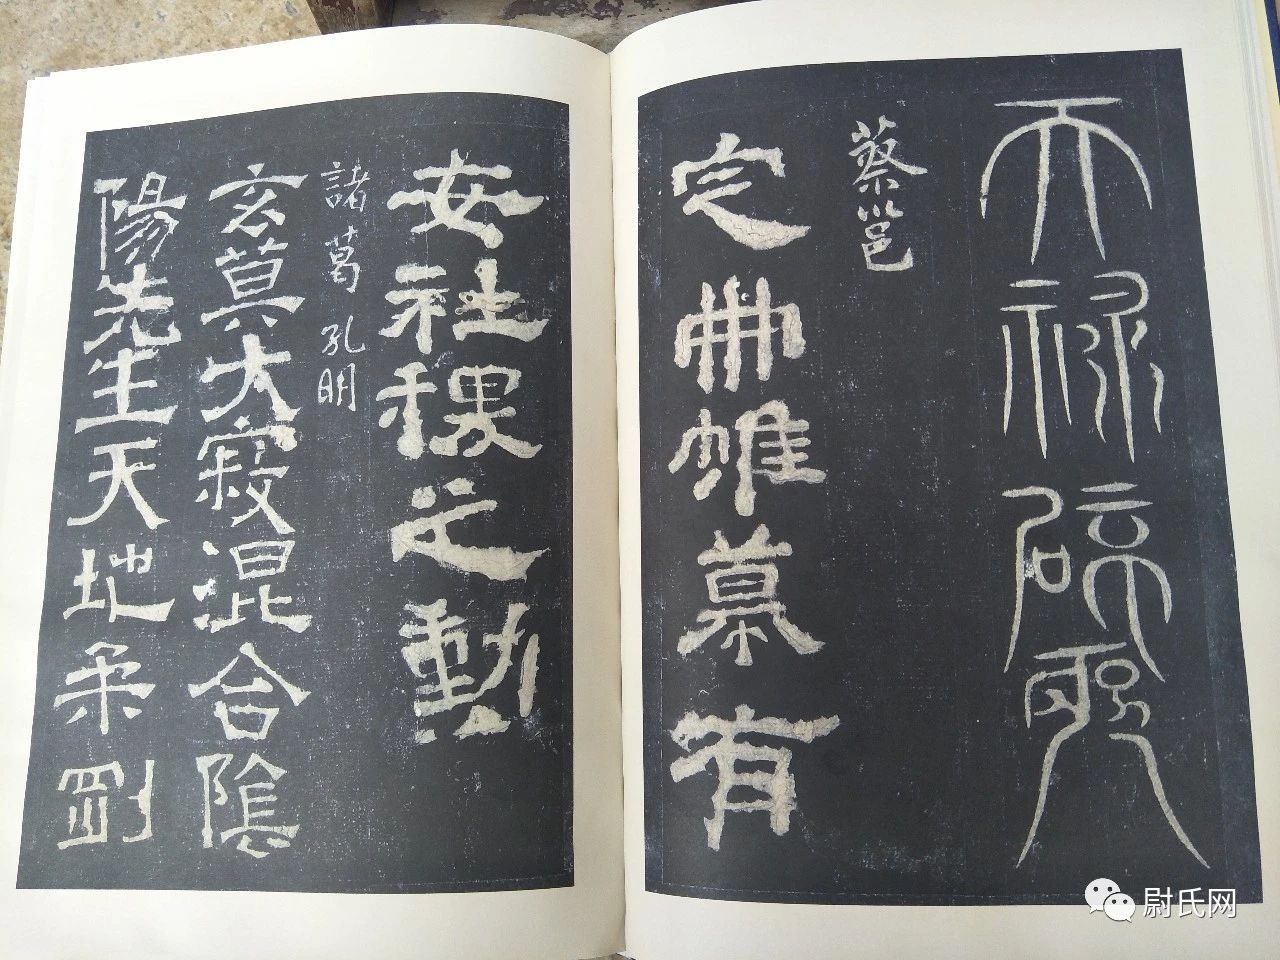 天禄辟邪
蔡邕
定冊帷幕有
安社稷之勳
諸葛孔明
玄莫大寂混合陰
陽先生天地柔剛
尉氏网